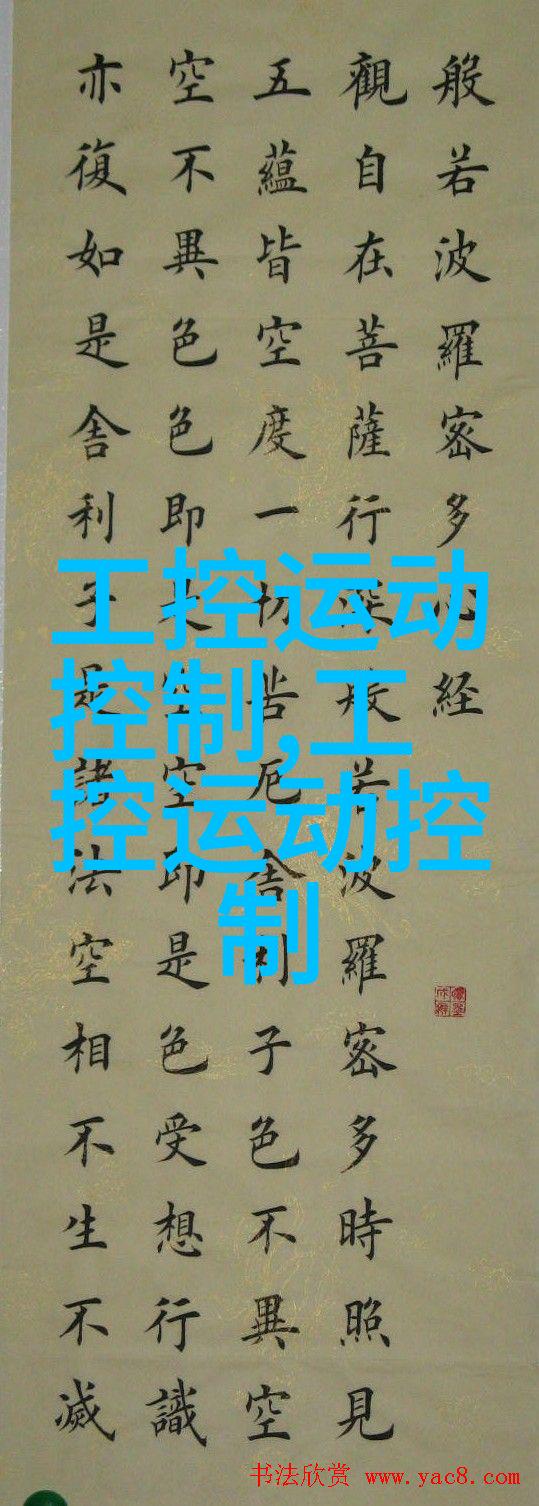 般若波羅密多心経
觀自在菩薩行深般若波羅密多時照見
五蘊皆空度一切苦厄舍利子色不異空
空不異色色即是空空即是色受想行識
亦復如是舍利子是諸法空相不生不滅
工控运动
控制,工
控运动控
制
书法欣赏 www.yac8.com